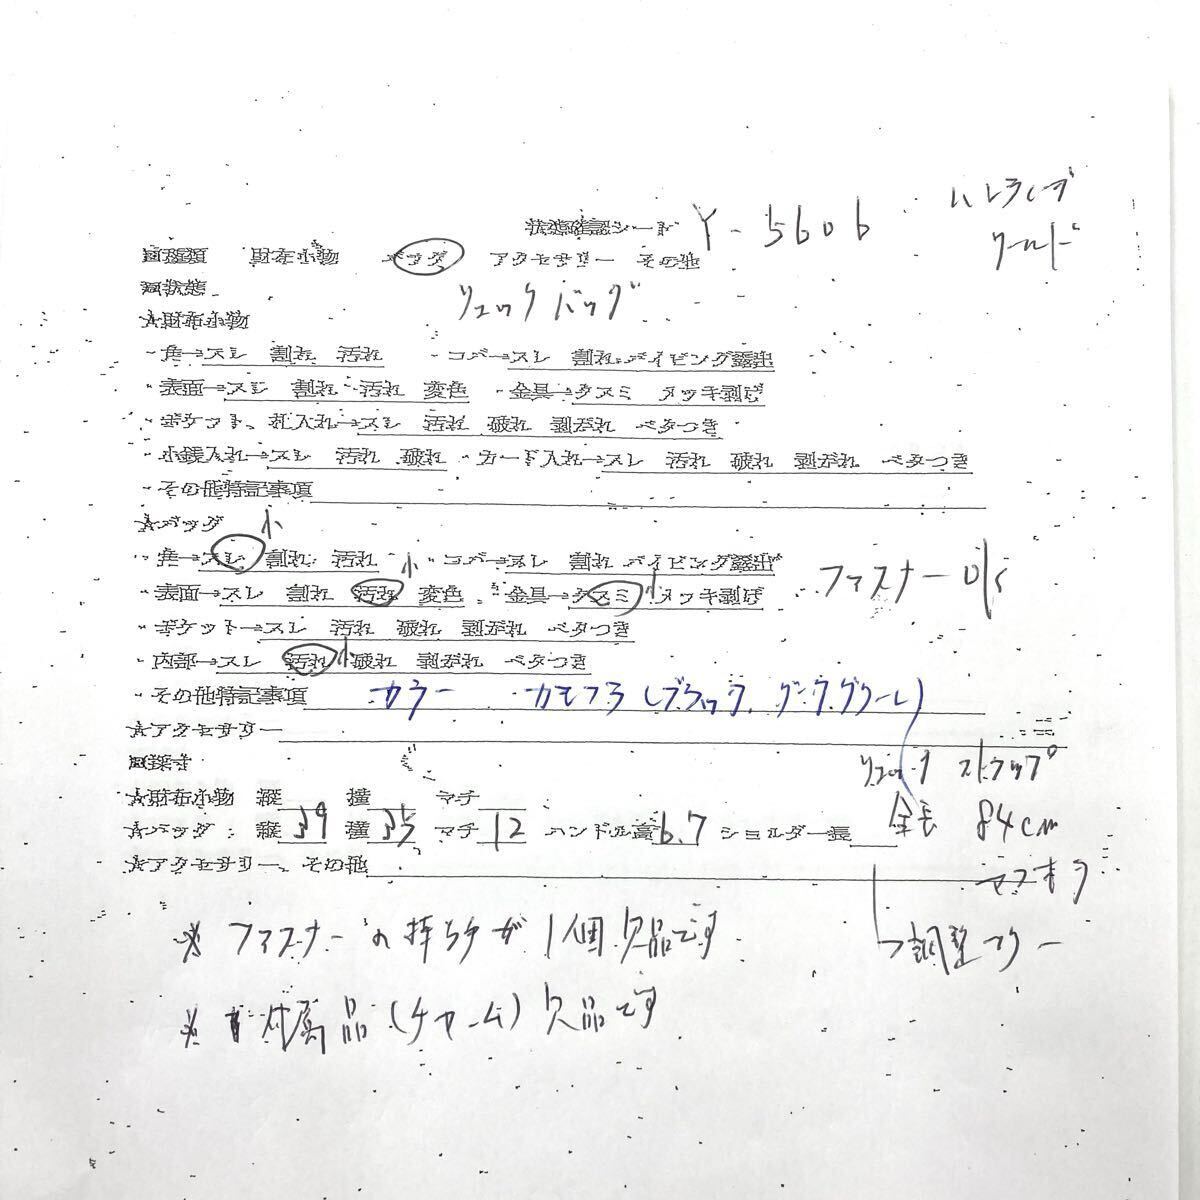 状態確認シート Y-5606 ハレライブ
ワールド
■種類 財布小物 バッグ アクセサリー その他
■状態 リュックバッグ
★財布小物
・角→スレ 割れ 汚れ ・コバ→スレ 割れ パイピング露出
・表面→スレ 割れ 汚れ 変色 ・金具→クスミ メッキ剥げ
・ポケット、札入れ→スレ 汚れ 破れ 剥がれ ベタつき
・小銭入れ→スレ 汚れ 破れ ・カード入れ→スレ 汚れ 破れ 剥がれ ベタつき
・その他特記事項
★バッグ 小
・角→スレ 割れ 汚れ ・コバ→スレ 割れ パイピング露出
・表面→スレ 割れ 汚れ 小 変色 ・金具→クスミ 小 メッキ剥げ ファスナーO/S
・ポケット→スレ 汚れ 破れ 剥がれ ベタつき
・内部→スレ 汚れ 小 破れ 剥がれ ベタつき
・その他特記事項 カラー カモフラ(ブラック、ダークグレー)
★アクセサリー
■採寸 リュック ストラップ
★財布小物 縦 横 マチ 全長 84cm
★バッグ：縦 39 横 35 マチ 12 ハンドル高 6.7 ショルダー長
★アクセサリー、その他
→調整フリー
※ファスナーの持ち手が1個欠品です
※付属品(チャーム)欠品です